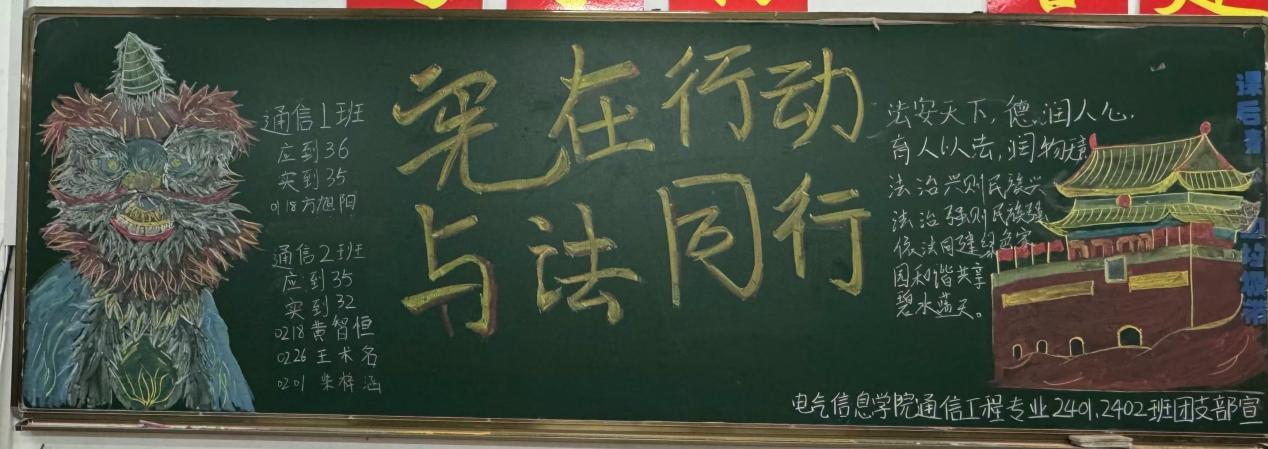 通信1班
应到36
实到35
0218方旭阳
通信2班
应到35
实到32
0218黄智恒
0226王术名
0201柴梓涵
宪在行动
与法同行
法安天下,德润人心.
育人以法,润物
法治兴则民族兴
法治强则民族强
依法同建绿色家
园和谐共享
碧水蓝天。
电气信息学院通信工程专业2401.2402班团支部宣
课后